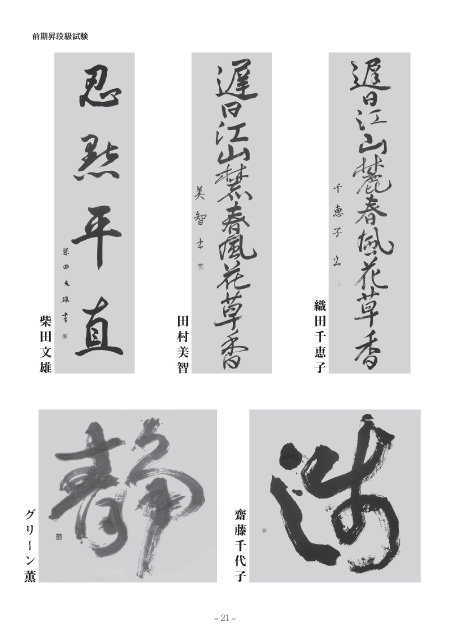 前期昇段級試験
遲日江山麗春風花草香
千恵子
織田千恵子
遲日江山麗春風花草香
美智
田村美智
忍默平直
柴田文雄書
柴田文雄
齋藤千代子
静
グリーン薫
– 21 –